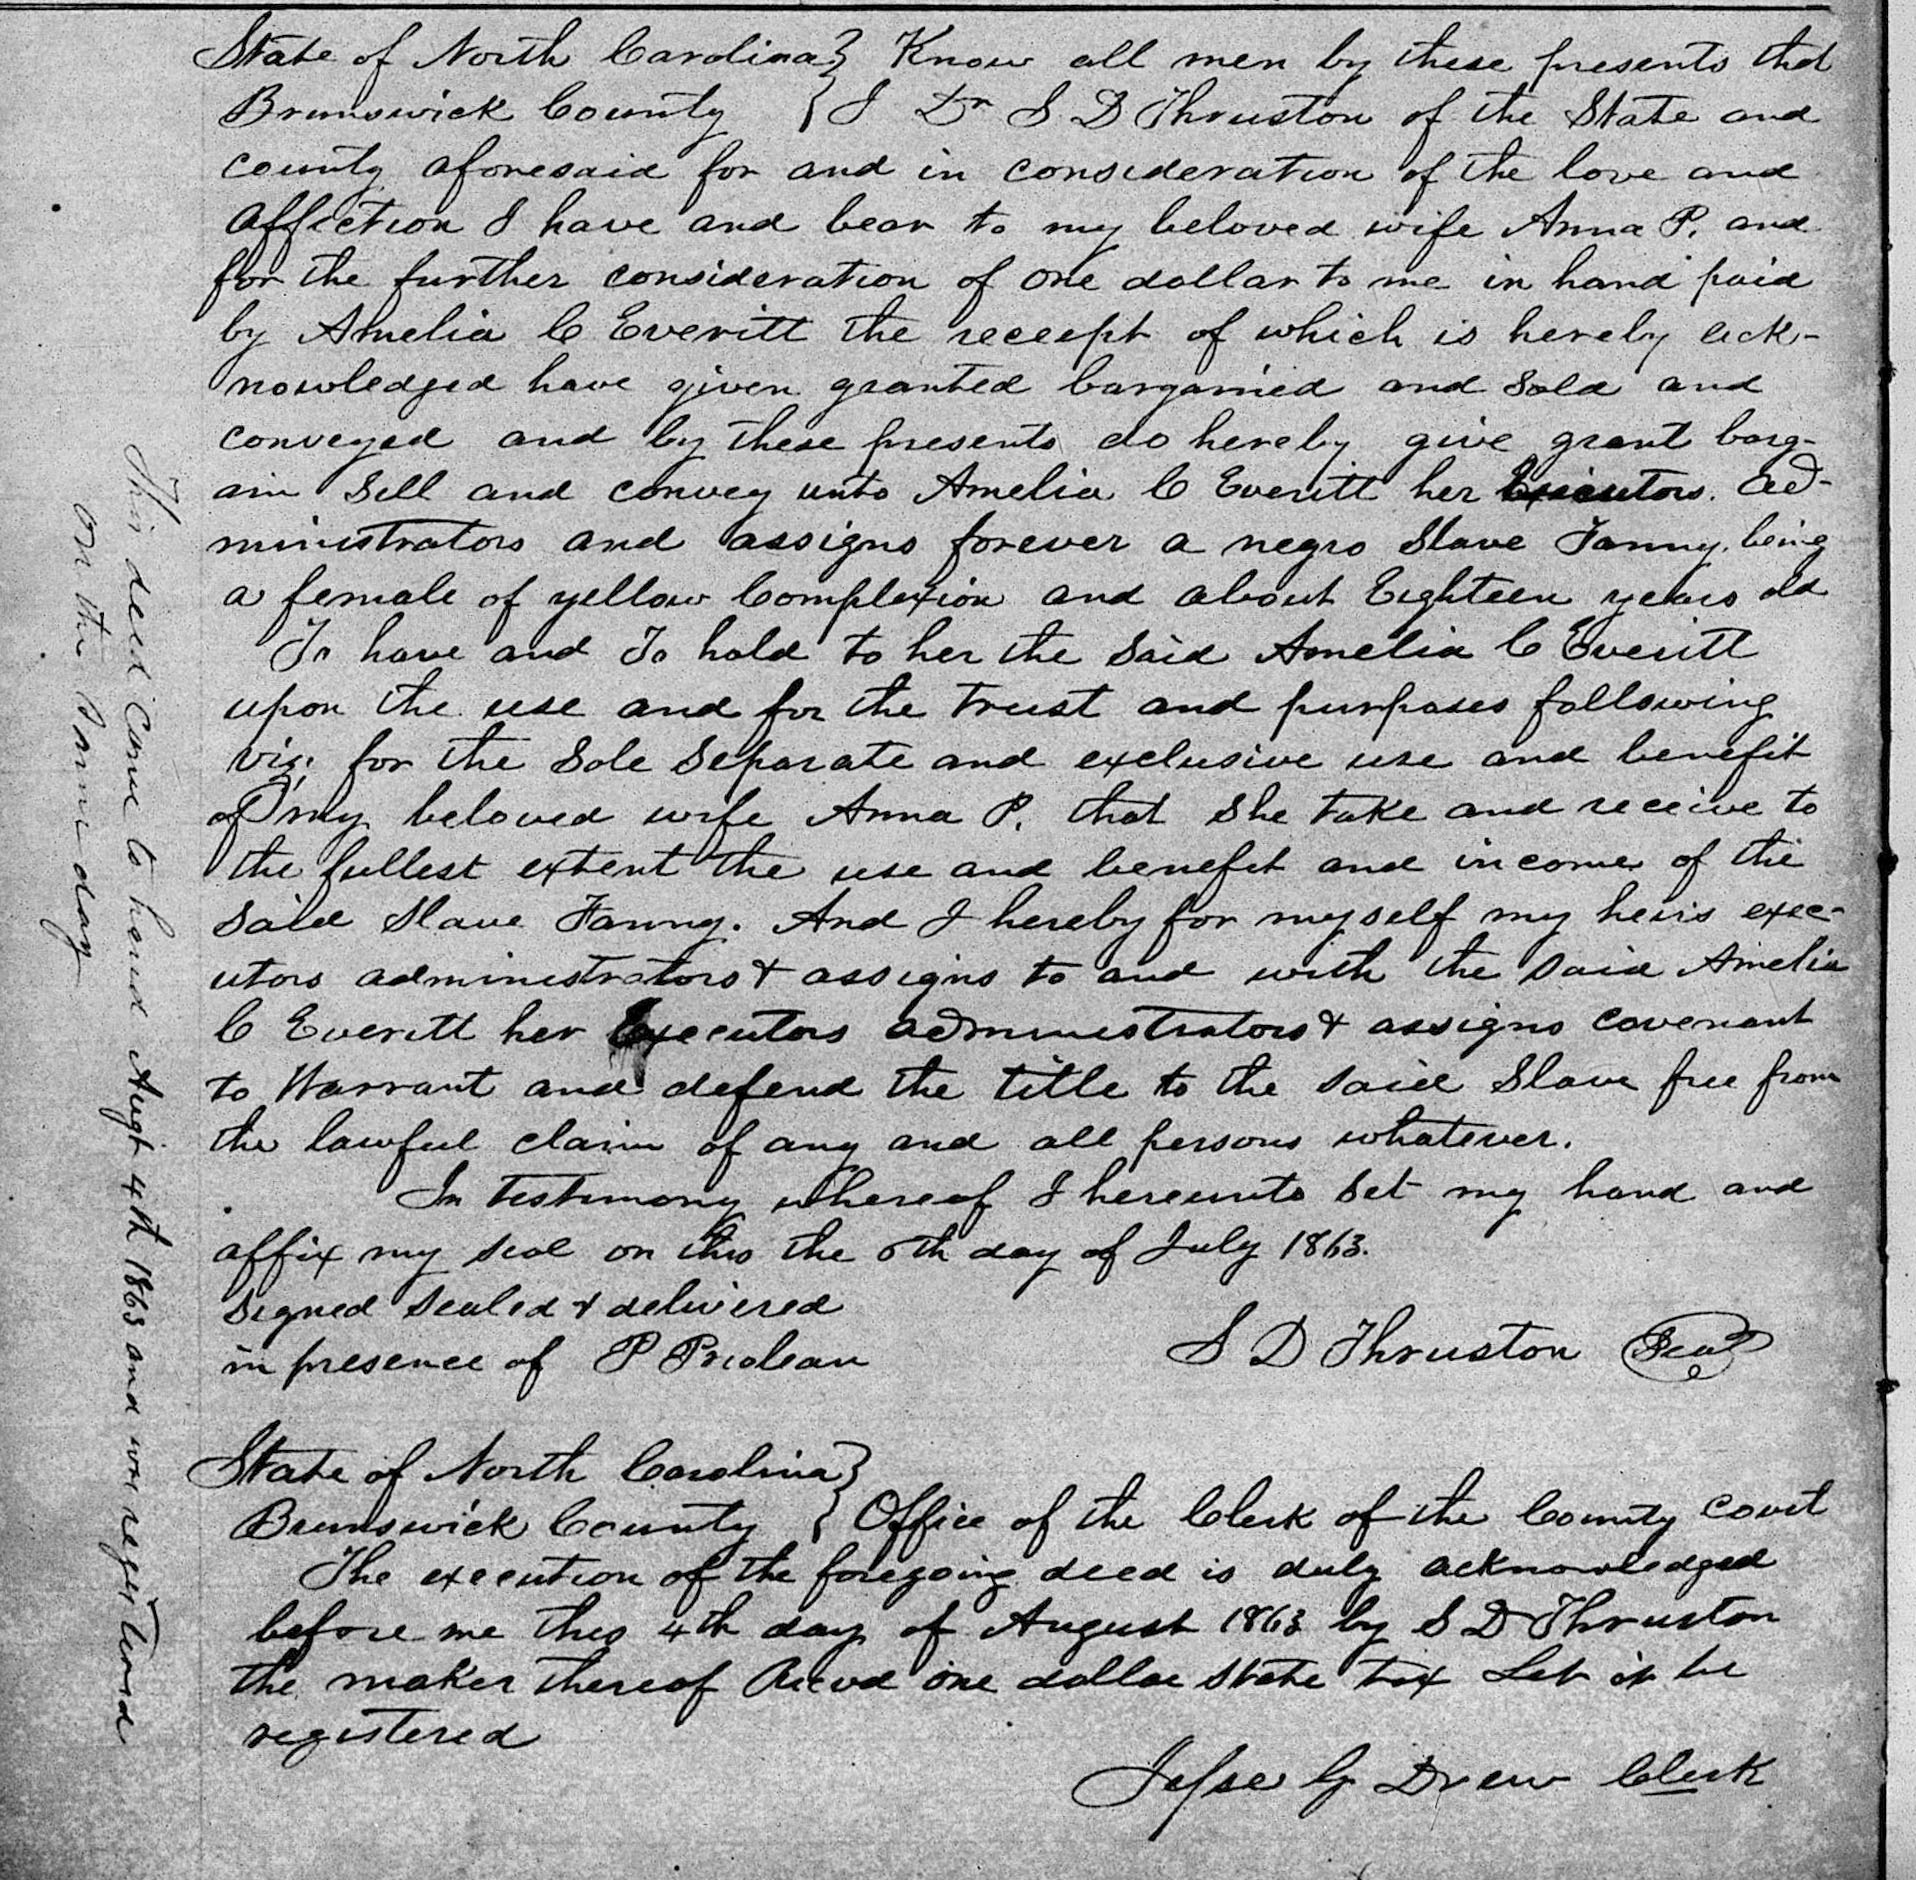 State of North Carolina } Know all men by these presents that
Brunswick County } I Dr S D Thruston of the State and
county aforesaid for and in consideration of the love and
affection I have and bear to my beloved wife Anna P. and
for the further consideration of one dollar to me in hand paid
by Amelia C Everitt the receept of which is hereby ack-
nowledged have given granted bargained and sold and
conveyed and by these presents do hereby give grant barg-
ain Sell and convey unto Amelia C Everitt her Executors. Ad-
ministrators and assigns forever a negro Slave Fanny, being
a female of yellow Complexion and about Eighteen years old
To have and To hold to her the said Amelia C Everitt
upon the use and for the trust and purposes following
viz: for the Sole Separate and exclusive use and benefit
of my beloved wife Anna P. that she take and receive to
the fullest extent the use and benefit and income of the
said Slave Fanny. And I hereby for myself my heirs exec-
utors administrators & assigns to and with the said Amelia
C Everitt her Executors administrators & assigns covenant
to Warrant and defend the title to the said Slave free from
the lawful claim of any and all persons whatever.
In testimony whereof I hereunto Set my hand and
affix my seal on this the 6th day of July 1863.
Signed Sealed & delivered
in presence of P Prioleau S D Thruston Seal
State of North Carolina }
Brunswick County } Office of the Clerk of the County Court
The execution of the foregoing deed is duly acknowledged
before me this 4th day of August 1863 by S D Thruston
the maker thereof Recvd one dollar State tax Let it be
registered
Jesse G Drew Clerk
This deed Came to hand Augt 4th 1863 and was registered
on the Same day